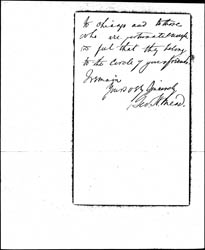 to chicago and to those
who are fortunate enough
to feel that they belong
to the circle of your friends
I remain
Yours very sincerely
Geo. H. Mead.